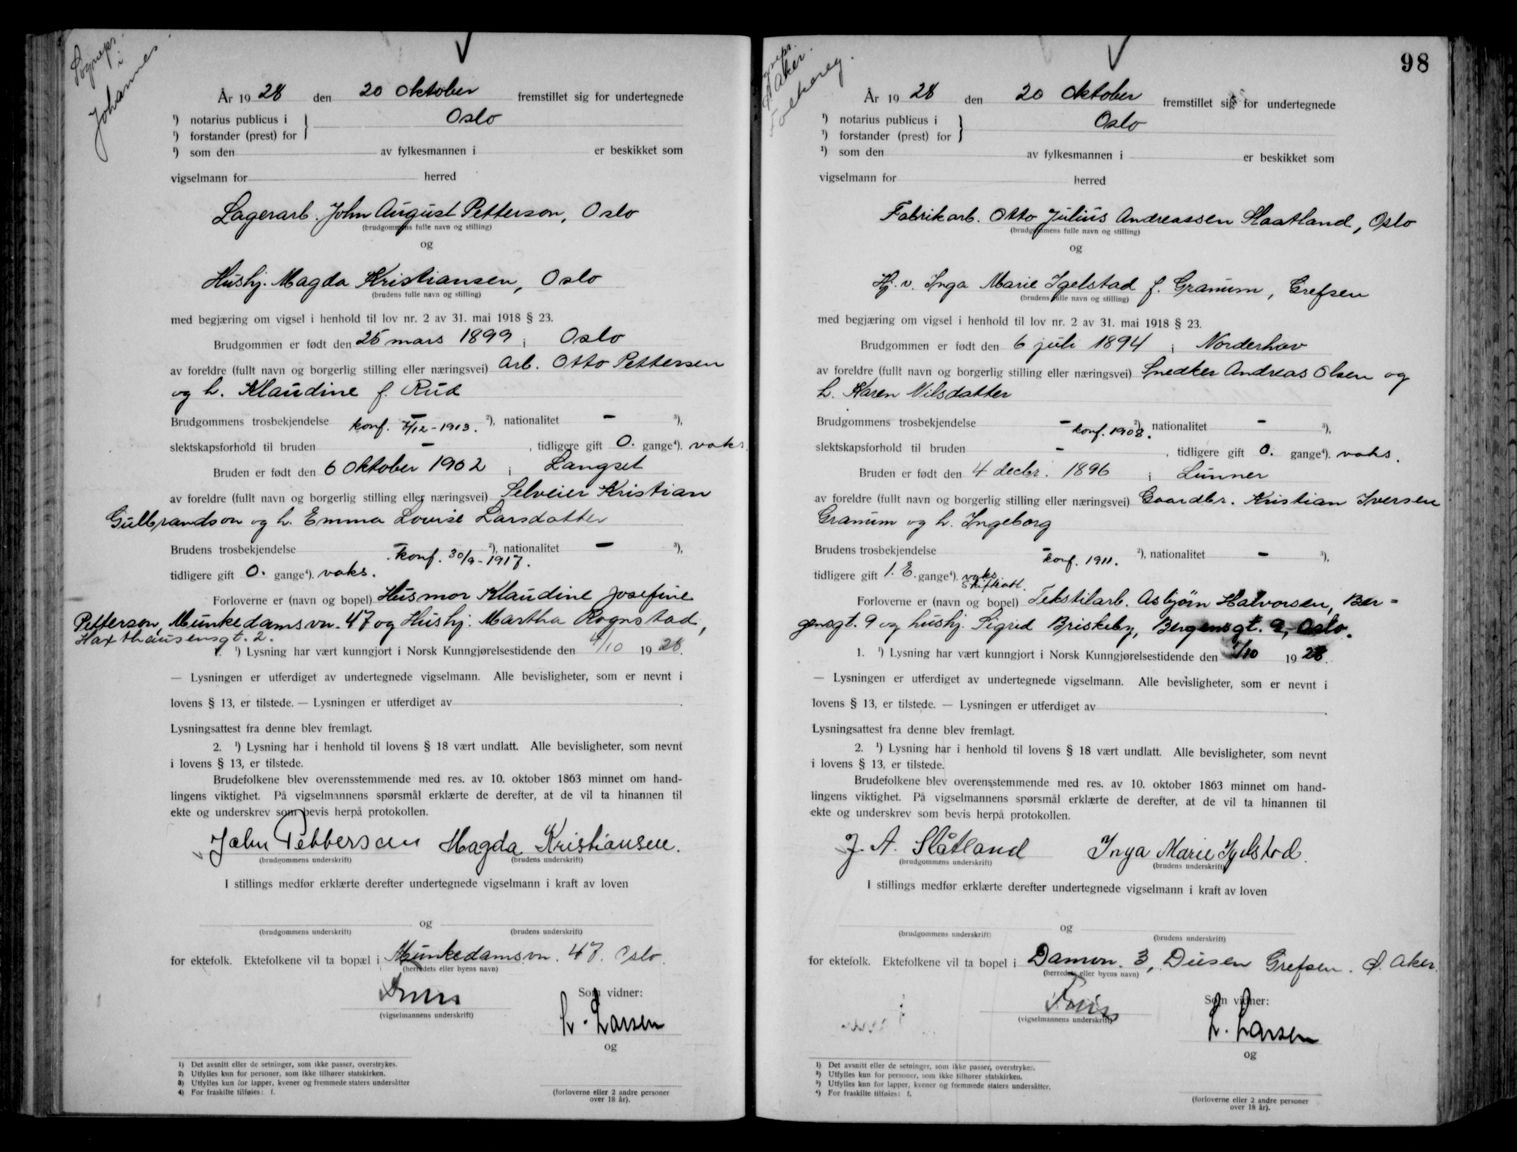 Sogneps.
i
Johannes
År 1928 den 20 oktober fremstillet sig for undertegnede
¹) notarius publicus i } Oslo
¹) forstander (prest) for }
¹) som den av fylkesmannen i er beskikket som
vigselmann for herred
Lagerarb. John August Petterson, Oslo
(brudgommens fulle navn og stilling)
og
Hushj. Magda Kristiansen, Oslo
(brudens fulle navn og stilling)
med begjæring om vigsel i henhold til lov nr. 2 av 31. mai 1918 § 23.
Brudgommen er født den 25 mars 1899 i Oslo
av foreldre (fullt navn og borgerlig stilling eller næringsvei) Arb. Otto Pettersen
og h. Klaudine f. Rud
Brudgommens trosbekjendelse – konf. 7/12-1913. ²), nationalitet – ³),
slektskapsforhold til bruden – , tidligere gift 0. gange⁴). vaks.
Bruden er født den 6 oktober 1902 i Langset
av foreldre (fullt navn og borgerlig stilling eller næringsvei) Selveier Kristian
Gulbrandson og h. Emma Lovise Larsdatter
Brudens trosbekjendelse – konf. 30/9-1917. ²), nationalitet – ³),
tidligere gift 0. gange⁴). vaks.
Forloverne er (navn og bopel) Husmor Klaudine Josefine
Petterson, Munkedamsvn. 47 og Hushj. Martha Rognstad,
Haxthausensgt. 2.
1. ¹) Lysning har vært kunngjort i Norsk Kunngjørelsestidende den 4/10 1928.
— Lysningen er utferdiget av undertegnede vigselmann. Alle bevisligheter, som er nevnt i
lovens § 13, er tilstede. — Lysningen er utferdiget av
Lysningsattest fra denne blev fremlagt.
2. ¹) Lysning har i henhold til lovens § 18 vært undlatt. Alle bevisligheter, som nevnt
i lovens § 13, er tilstede.
Brudefolkene blev overensstemmende med res. av 10. oktober 1863 minnet om hand-
lingens viktighet. På vigselmannens spørsmål erklærte de derefter, at de vil ta hinannen til
ekte og underskrev som bevis herpå protokollen.
John Pettersen Magda Kristiansen.
(brudgommens underskrift) (brudens underskrift)
I stillings medfør erklærte derefter undertegnede vigselmann i kraft av loven
og
(brudgommens underskrift) (brudens underskrift)
for ektefolk. Ektefolkene vil ta bopæl i Munkedamsvn. 47. Oslo.
(herredets eller byens navn)
Som vidner:
(vigselmannens underskrift)
L. Larsen
og
1) Det avsnitt eller de setninger, som ikke passer, overstrykes.
2) Utfylles kun for personer, som ikke tilhører statskirken.
3) Utfylles kun for lapper, kvener og fremmede staters undersåtter
4) For fraskilte tilføies: f.
(forloverne eller 2 andre personer
over 18 år).
98
Aker
Folkereg.
År 1928 den 20 oktober fremstillet sig for undertegnede
¹) notarius publicus i } Oslo
¹) forstander (prest) for }
¹) som den av fylkesmannen i er beskikket som
vigselmann for herred
Fabrikarb. Otto Julius Andreassen Slaatland, Oslo
(brudgommens fulle navn og stilling)
og
Hj. v. Inga Marie Igelstad f. Granum, Grefsen
(brudens fulle navn og stilling)
med begjæring om vigsel i henhold til lov nr. 2 av 31. mai 1918 § 23.
Brudgommen er født den 6 juli 1894 i Norderhov
av foreldre (fullt navn og borgerlig stilling eller næringsvei) Snedker Andreas Olsen og
h. Karen Nilsdatter
Brudgommens trosbekjendelse – konf. 1908. ²), nationalitet – ³),
slektskapsforhold til bruden – , tidligere gift 0. gange⁴). vaks.
Bruden er født den 4 decbr. 1896 i Lunner
av foreldre (fullt navn og borgerlig stilling eller næringsvei) Gaardbr. Kristian Iversen
Granum og h. Ingeborg
Brudens trosbekjendelse – konf. 1911. ²), nationalitet – ³),
tidligere gift 1. E. gange⁴). vaks.
skifteatt.
Forloverne er (navn og bopel) Tekstilarb. Asbjørn Halvorsen, Ber-
gensgt. 9 og hushj. Sigrid Briskeby, Bergensgt. 9, Oslo.
1. ¹) Lysning har vært kunngjort i Norsk Kunngjørelsestidende den /10 1928.
— Lysningen er utferdiget av undertegnede vigselmann. Alle bevisligheter, som er nevnt i
lovens § 13, er tilstede. — Lysningen er utferdiget av
Lysningsattest fra denne blev fremlagt.
2. ¹) Lysning har i henhold til lovens § 18 vært undlatt. Alle bevisligheter, som nevnt
i lovens § 13, er tilstede.
Brudefolkene blev overensstemmende med res. av 10. oktober 1863 minnet om hand-
lingens viktighet. På vigselmannens spørsmål erklærte de derefter, at de vil ta hinannen til
ekte og underskrev som bevis herpå protokollen.
J. A. Slåtland Inga Marie Igelstad.
(brudgommens underskrift) (brudens underskrift)
I stillings medfør erklærte derefter undertegnede vigselmann i kraft av loven
og
(brudgommens underskrift) (brudens underskrift)
for ektefolk. Ektefolkene vil ta bopel i Damvn. 3, Disen Grefsen. Ø. Aker.
(herredets eller byens navn)
Som vidner:
(vigselmannens underskrift)
L. Larsen
og
¹) Det avsnitt eller de setninger, som ikke passer, overstrykes.
²) Utfylles kun for personer, som ikke tilhører statskirken.
³) Utfylles kun for lapper, kvener og fremmede staters undersåtter.
⁴) For fraskilte tilføies: f.
(forloverne eller 2 andre personer
over 18 år).